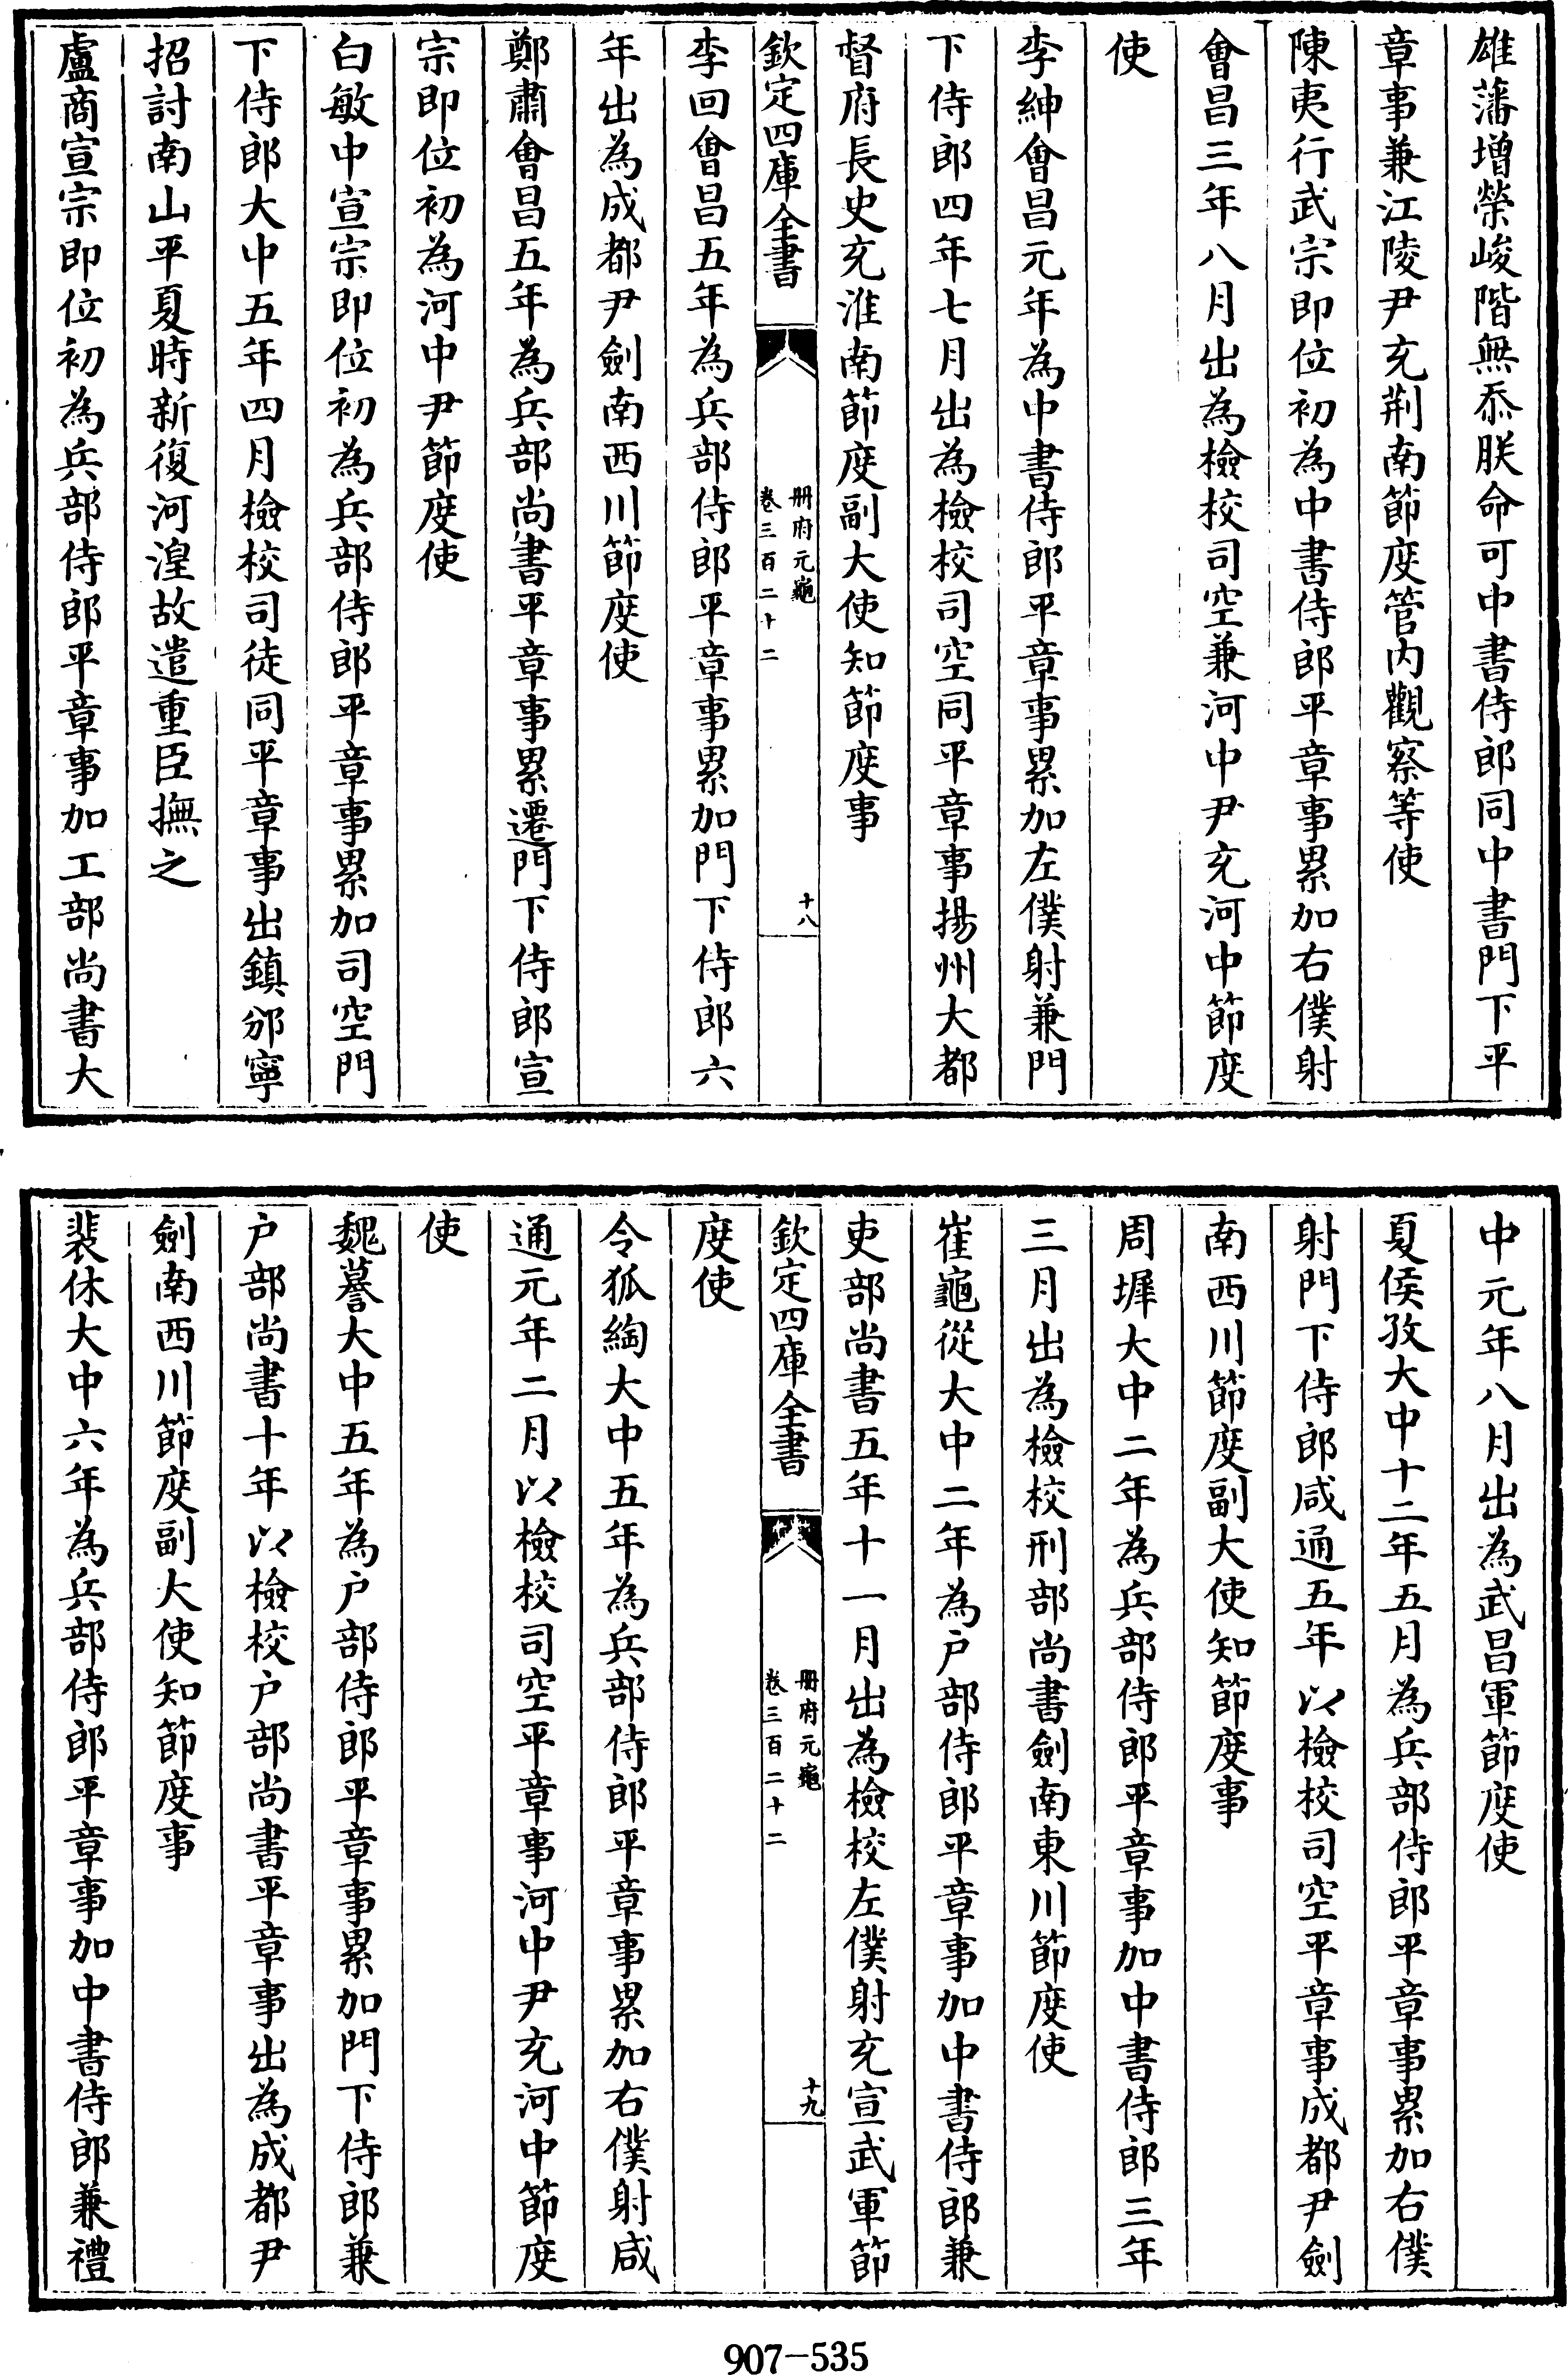 雄藩增榮峻階無忝朕命可中書侍郎同中書門下平
章事兼江陵尹充荆南節度管内觀察等使
陳夷行武宗即位初為中書侍郎平章事累加右僕射
會昌三年八月出為檢校司空兼河中尹充河中節度
使
李紳會昌元年為中書侍郎平章事累加左僕射兼門
下侍郎四年七月出為檢校司空同平章事揚州大都
督府長史充淮南節度副大使知節度事
欽定四庫全書
册府元龜
卷三百二十二
十八
李回會昌五年為兵部侍郎平章事累加門下侍郎六
年出為成都尹劍南西川節度使
鄭肅會昌五年為兵部尚書平章事累遷門下侍郎宣
宗即位初為河中尹節度使
白敏中宣宗即位初為兵部侍郎平章事累加司空門
下侍郎大中五年四月檢校司徒同平章事出鎮邠寧
招討南山平夏時新復河湟故遣重臣撫之
盧商宣宗即位初為兵部侍郎平章事加工部尚書大
中元年八月出為武昌軍節度使
夏侯孜大中十二年五月為兵部侍郎平章事累加右僕
射門下侍郎咸通五年以檢校司空平章事成都尹劍
南西川節度副大使知節度事
周墀大中二年為兵部侍郎平章事加中書侍郎三年
三月出為檢校刑部尚書劍南東川節度使
崔龜從大中二年為户部侍郎平章事加中書侍郎兼
吏部尚書五年十一月出為檢校左僕射充宣武軍節
欽定四庫全書
册府元龜
卷三百二十二
十九
度使
令狐綯大中五年為兵部侍郎平章事累加右僕射咸
通元年二月以檢校司空平章事河中尹充河中節度
使
魏謩大中五年為户部侍郎平章事累加門下侍郎兼
户部尚書十年以檢校户部尚書平章事出為成都尹
劍南西川節度副大使知節度事
裴休大中六年為兵部侍郎平章事加中書侍郎兼禮
907-535